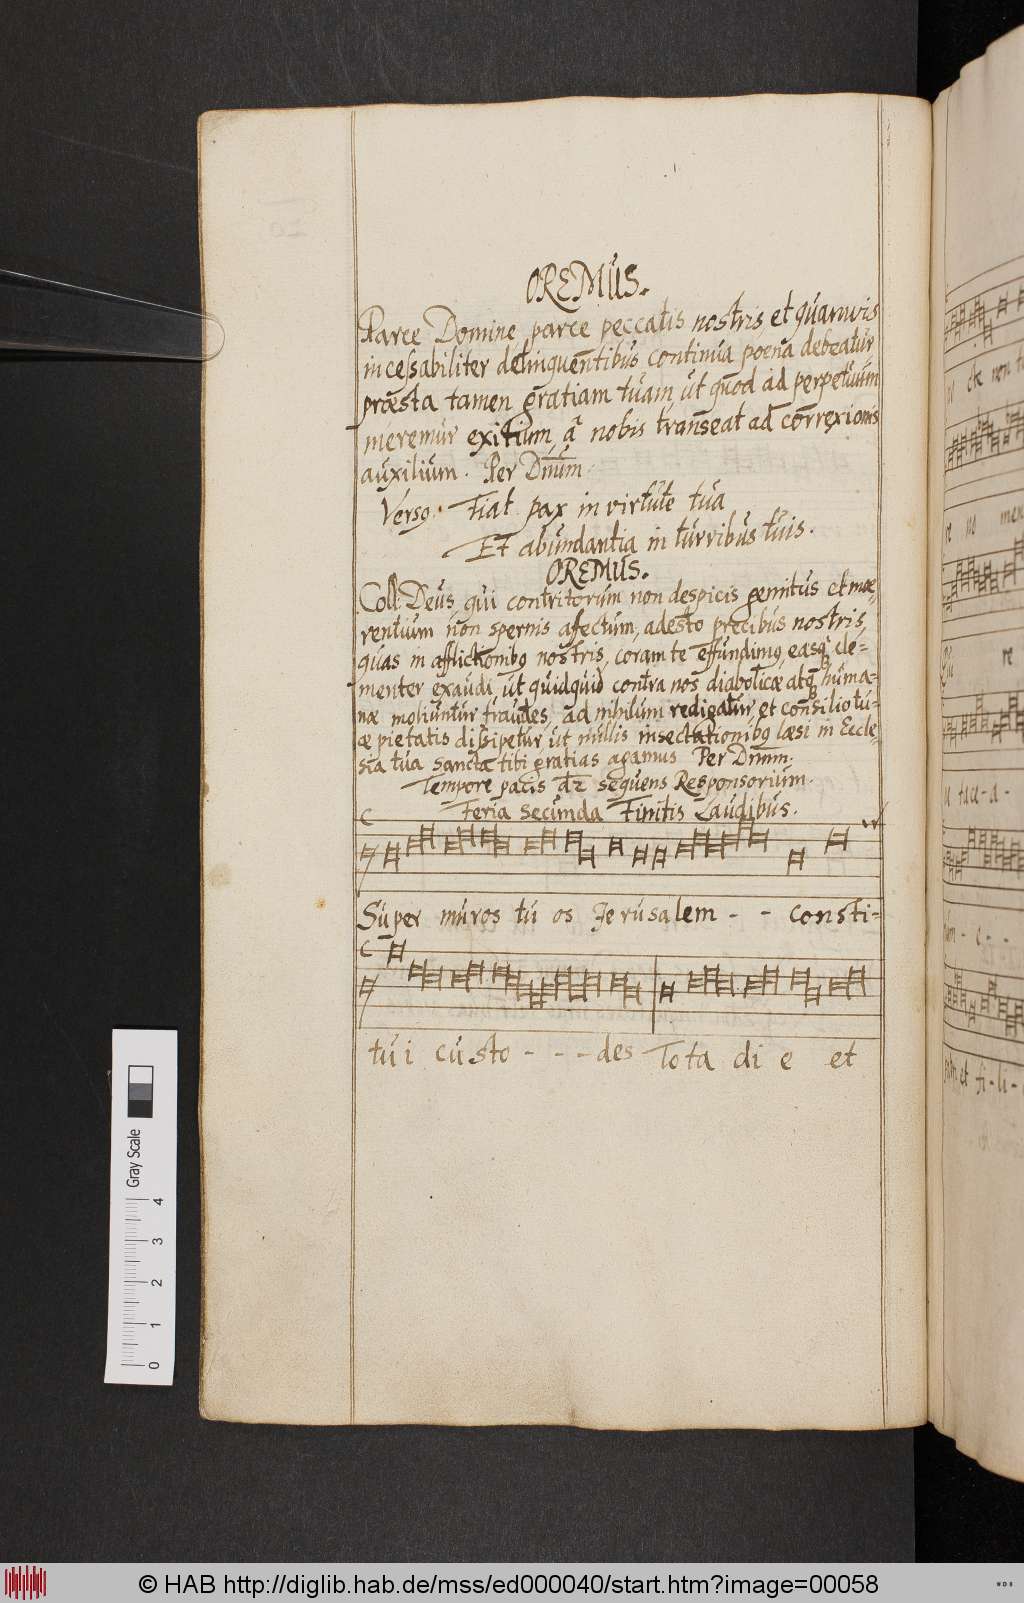 OREMUS.
Parce Domine parce peccatis nostris et quamvis
incessabiliter delinquentibus continua poena debeatur
præsta tamen gratiam tuam, ut quod ad perpetuum
meremur exitium, a nobis transeat ad correxionis
auxilium. Per Dnum.
Verso. Fiat pax in virtute tua
Et abundantia in turribus tuis.
OREMUS.
Coll: Deus, qui contritorum non despicis gemitus et mæ-
rentium non spernis afectum, adesto precibus nostris,
quas in afflictionibꝯ nostris, coram te effundimꝯ, easq́ cle=
menter exaudi, ut quidquid contra nos diabolicæ atq́ huma=
næ moliuntur fraudes, ad nihilum redigatur, et consilio tu-
æ pietatis dissipetur, ut nullis insectationibꝯ læsi in Eccle-
sia tua sancta tibi gratias agamus Per Dnum.
Tempore pacis dr̄ sequens Responsorium.
Feria secunda Finitis Laudibus.
Super muros tu os Jerusalem - - consti=
tu i custo - - - des Tota di e et
ck non t
re us men
re
u tace-a-
um - e - -
patri et fi-li-
Gray Scale
0 1 2 3 4
© HAB http://diglib.hab.de/mss/ed000040/start.htm?image=00058